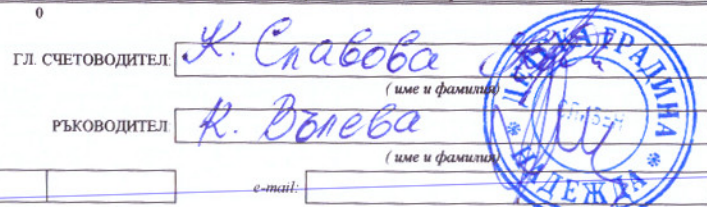 0
ГЛ. СЧЕТОВОДИТЕЛ: К. Славова
( име и фамилия)
РЪКОВОДИТЕЛ: К. Вълева
( име и фамилия)
e-mail:
ДЕТСКА ГРАДИНА
СЛИВЕН
* НАДЕЖДА *